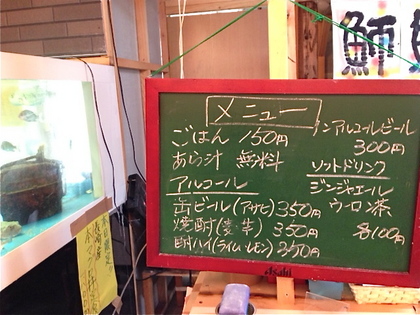 メニュー
ごはん 150円
あら汁 無料
アルコール
缶ビール(アサヒ)350円
焼酎(麦・芋) 350円
酎ハイ(ライム・レモン) 350円
ノンアルコールビール
300円
ソフトドリンク
ジンジャエール
ウーロン茶
各100円
Asahi